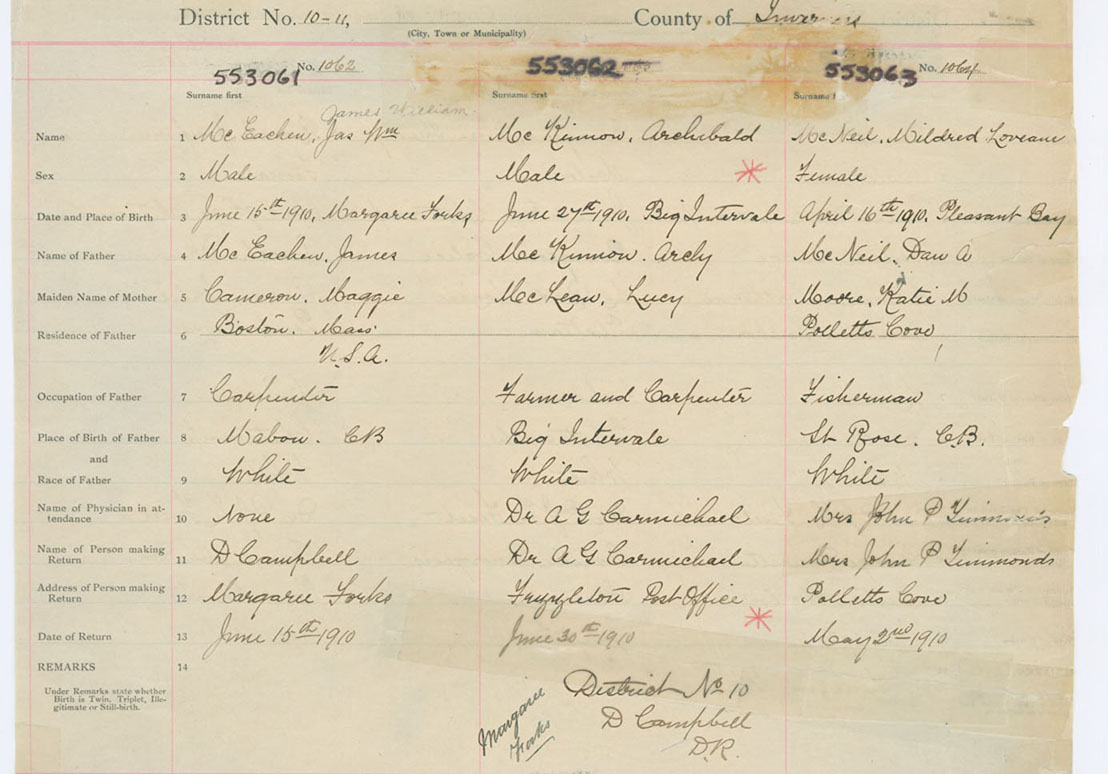 District No. 10-11, County of Inverness
(City, Town or Municipality)
553061 No. 1062 553062 553063 No. 1064
Surname first Surname first Surname f
James William
Name 1 Mc Eachen, Jas Wm Mc Kinnon, Archibald McNeil, Mildred Loveann
Sex 2 Male Male Female
Date and Place of Birth 3 June 15th 1910, Margaree Forks June 27th 1910, Big Intervale April 16th 1910, Pleasant Bay
Name of Father 4 Mc Eachen, James Mc Kinnon, Archy McNeil, Dan A
Maiden Name of Mother 5 Cameron, Maggie McLean, Lucy Moore, Katie M
Residence of Father 6 Boston, Mass Polletts Cove
U.S.A.
Occupation of Father 7 Carpenter Farmer and Carpenter Fisherman
Place of Birth of Father 8 Mabou. CB Big Intervale St Rose. C.B.
and
Race of Father 9 White White White
Name of Physician in at-
tendance 10 None Dr A G Carmichael Mrs John P
Name of Person making
Return 11 D Campbell Dr A G Carmichael Mrs John P Timmonds
Address of Person making
Return 12 Margaree Forks Fryzleton Post Office Polletts Cove
Date of Return 13 June 15th 1910 June 30th 1910 May 2nd 1910
REMARKS 14
Under Remarks state whether
Birth is Twin, Triplet, Ille-
gitimate or Still-birth.
District No 10
D Campbell
D.R.
Margaree
Forks